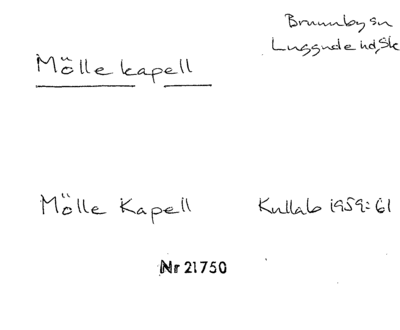 Brunnby sn
Luggude hd, Sk
Mölle kapell
Mölle Kapell
Kullab 1959:61
Nr 21750